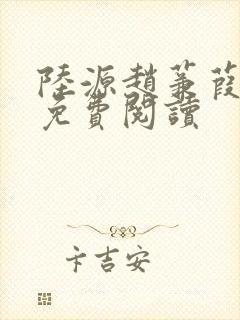 陸源趙蒹葭
免費閱讀
卡吉安